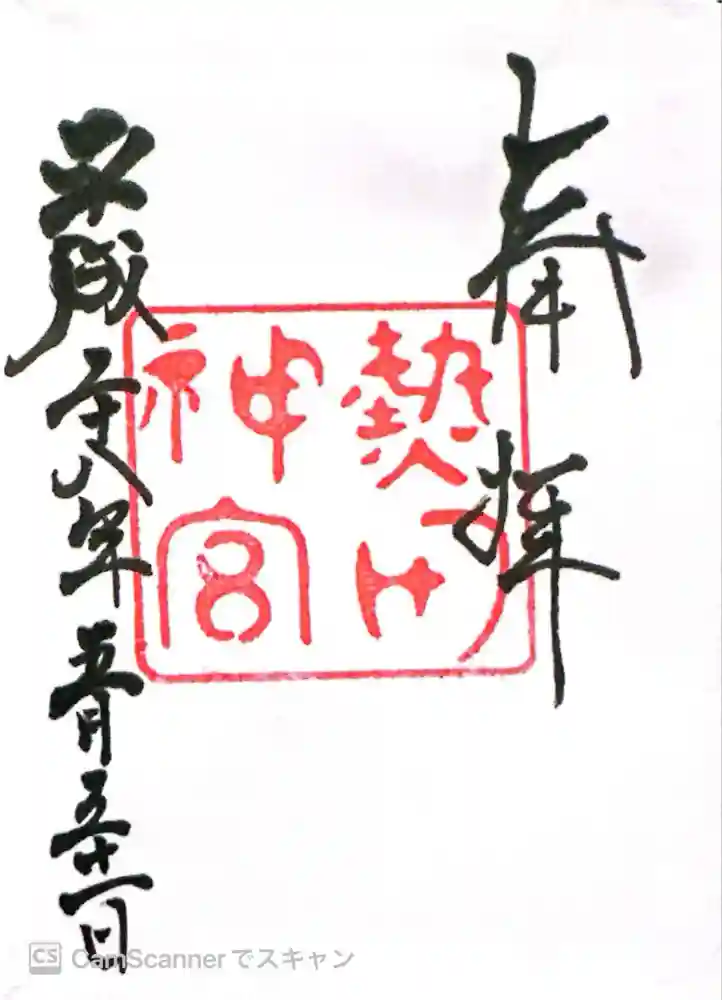 奉拝
熱田
神宮
平成二十八年五月三十一日
CS CamScannerでスキャン